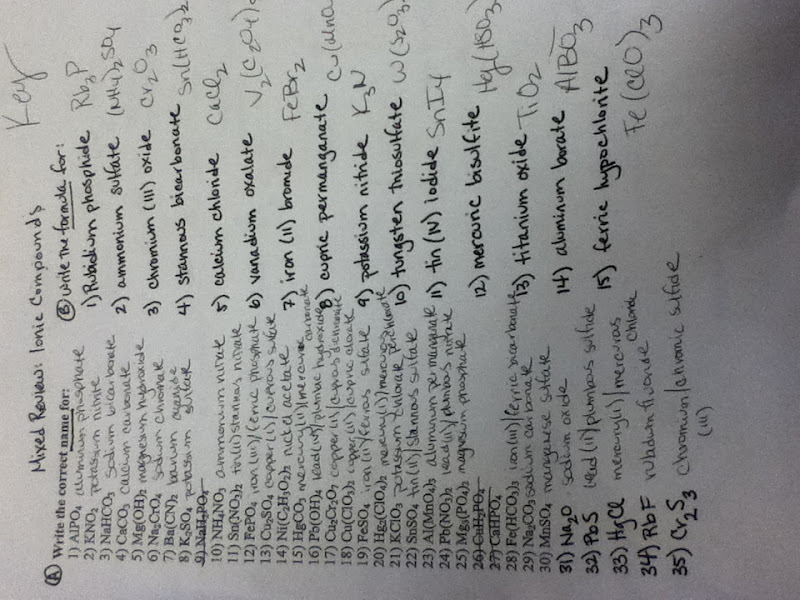 Key
Mixed Review: Ionic Compounds
A Write the correct name for:
1) AlPO4 aluminum phosphate
2) KNO2 potassium nitrite
3) NaHCO3 sodium bicarbonate
4) CaCO3 calcium carbonate
5) Mg(OH)2 magnesium hydroxide
6) Na2CrO4 sodium chromate
7) Ba(CN)2 barium cyanide
8) K2SO4 potassium sulfate
9) NaH2PO4
10) NH4NO3 ammonium nitrate
11) Sn(NO3)2 tin(II)/stannous nitrate
12) FePO4 iron(III)/ferric phosphate
13) Cu2SO4 copper(I)/cuprous sulfate
14) Ni(C2H3O2)2 nickel acetate
15) HgCO3 mercury(II)/mercuric carbonate
16) Pb(OH)4 lead(IV)/plumbic hydroxide
17) Cu2Cr2O7 copper(I)/cuprous dichromate
18) Cu(ClO3)2 copper(II)/cupric chlorate
19) FeSO4 iron(II)/ferrous sulfate
20) mercury(I)/mercurous perchlorate
21) KClO3 potassium chlorate
22) SnSO4 tin(II)/stannous sulfate
23) Al(MnO4)3 aluminum permanganate
24) Pb(NO3)2 lead(II)/plumbous nitrate
25) Mg3(PO4)2 magnesium phosphate
26) CaH2PO4
27) CaHPO4
28) Fe(HCO3)3 iron(III)/ferric bicarbonate
29) Na2CO3 sodium carbonate
30) MnSO4 manganese sulfate
31) Na2O sodium oxide
32) PbS lead(II)/plumbous sulfide
33) HgCl mercury(I)/mercurous chloride
34) RbF rubidium fluoride
35) Cr2S3 chromium/chromic sulfide
(III)
B Write the formula for:
1) Rubidium phosphide Rb3P
2) ammonium sulfate (NH4)2SO4
3) chromium (III) oxide Cr2O3
4) stannous bicarbonate Sn(HCO3)2
5) calcium chloride CaCl2
6) vanadium oxalate V2(C2O4)
7) iron (II) bromide FeBr2
8) cupric permanganate Cu(MnO
9) potassium nitride K3N
10) tungsten thiosulfate W(S2O3)
11) tin (IV) iodide SnI4
12) mercuric bisulfite Hg(HSO3)2
13) titanium oxide TiO2
14) aluminum borate AlBO3
15) ferric hypochlorite Fe(ClO)3